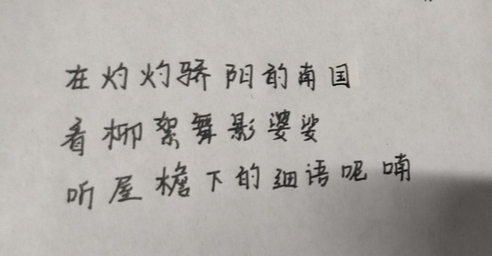 在灼灼骄阳的南国
看柳絮舞影婆娑
听屋檐下的细语呢喃